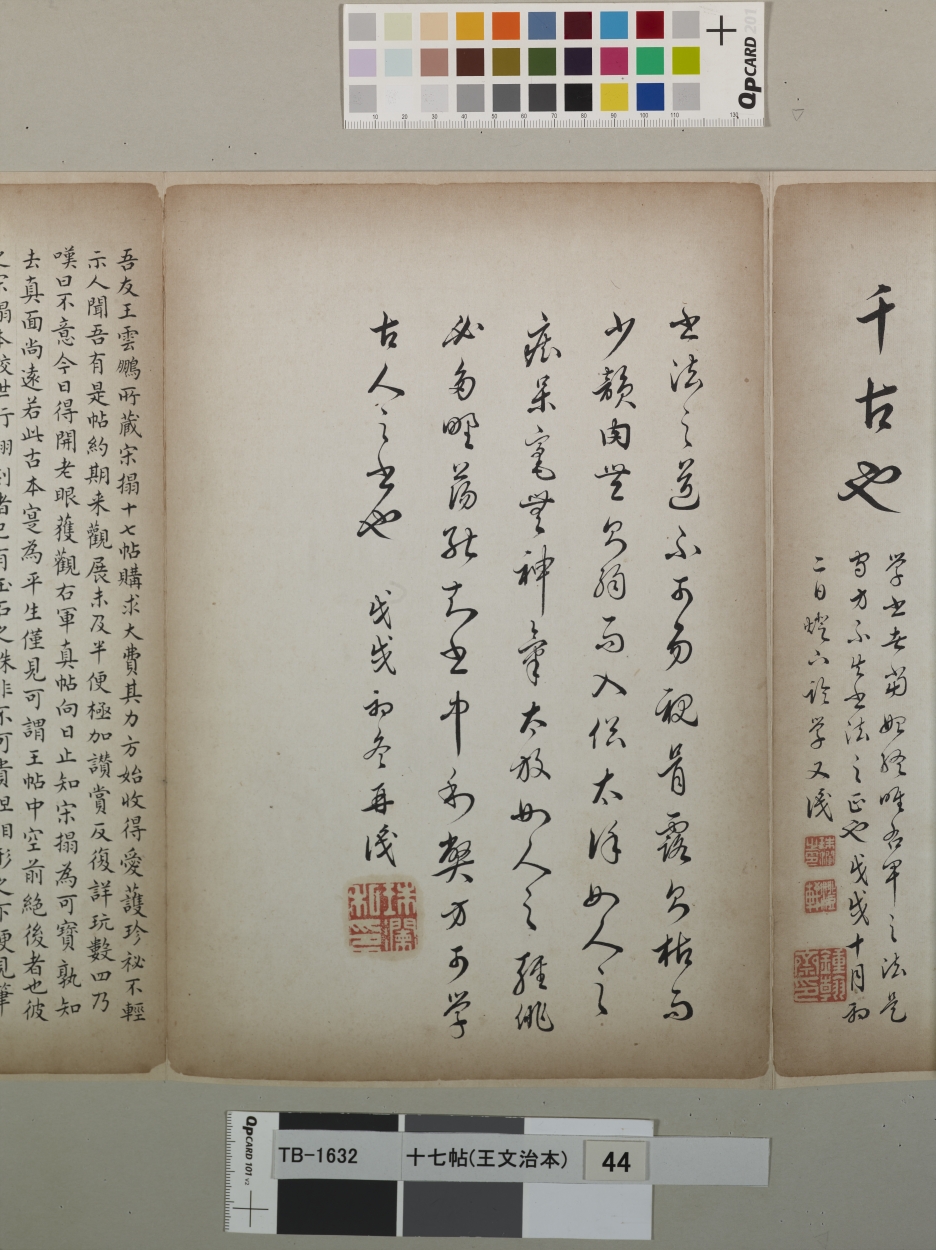 QPCARD 201
10 20 30 40 50 60 70 80 90 100 110 130
千古也
学書者
唯右軍之法是
方不失書法之正也戊戌十月初
二日燈下論学又識
書法之道不可易視骨露如枯而
少韻肉無如弱而入俗太 如人之
痴呆毫無神氣太放如人之輕佻
必多野蕩能知書中利弊方可学
古人之書也 戊戌初冬再識
吾友王雲鵬所蔵宋搨十七帖購求大費其力方始收得愛護珍祕不輕
示人聞吾有是帖約期来觀展未及半便極加讃賞反復詳玩數四乃
嘆曰不意今日得開老眼獲觀右軍真帖向日止知宋搨為可寶孰知
去真面尚遠若此古本寔為平生僅見可謂王帖中空前絶後者也彼
之宋搨本較世行翻刻者已有玉石之殊非不可貴但相形之下便見筆
QPCARD 101 v2
TB-1632 十七帖(王文治本) 44